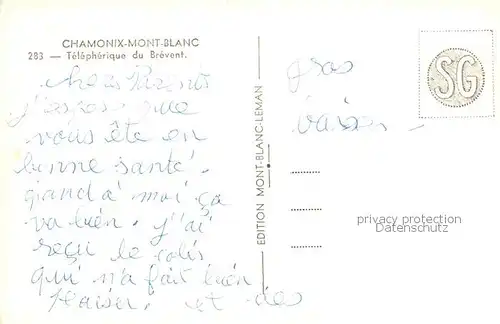 CHAMONIX-MONT-BLANC
283 — Téléphérique du Brévent.
chers Parents
j'espère que
vous ête en
bonne santé.
quand à moi ça
va bien. j'ai
reçu le colis
qui m'a fait bien
plaisir. et des
gros
baiser.
EDITION MONT-BLANC-LEMAN
SG
privacy protection
Datenschutz